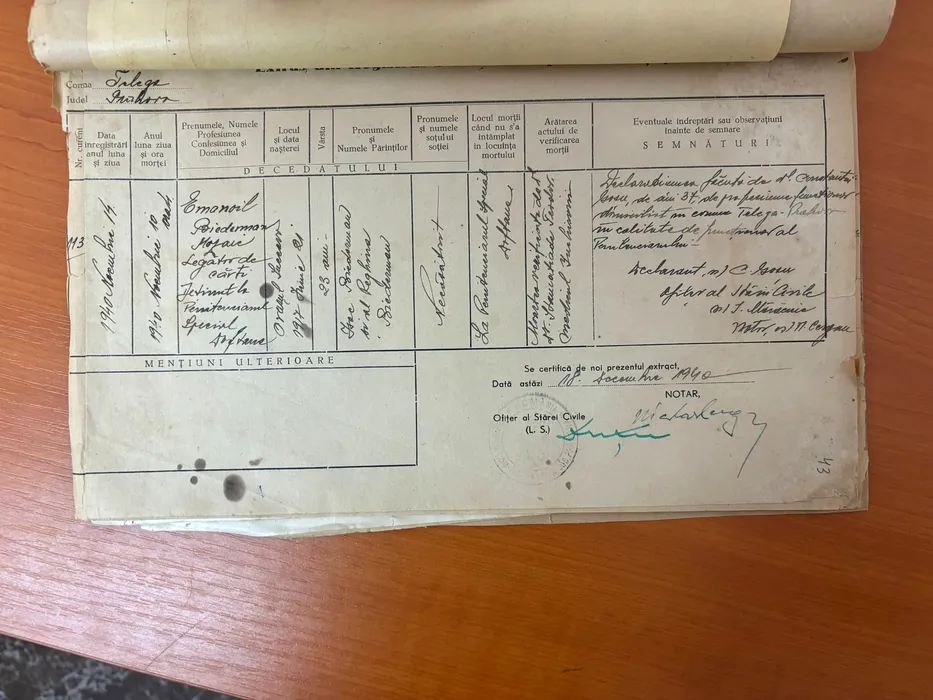 Coma Telega
Judeł Prahova
Nr. curent
Data
înregistrări
anul luna
și ziua
Anul
luna ziua
și ora
morței
Prenumele, Numele
Profesiunea
Confesiunea și
Domiciliul
Locul
și data
nașterei
Vârsta
Pronumele
și
Numele Părinților
Pronumele
și numele
soțului
soției
Locul morții
când nu s'a
întâmplat
în locuința
mortului
Arătarea
actului de
verificarea
morții
Eventuale indreptări sau observațiuni
înainte de semnare
SEMNĂTURI
DECEDATULUI
113
1940 Noembrie 14
1940 Noembrie 10
Emanoil
Biederman
Mozaic
Legător de
cărți
Deținut la
Penitenciarul
Special
Doftana
Orașul
1917 Iunie 21
23 ani
Isac Biederman
și al Reghina
Biederman
Necăsătorit
La Penitenciarul Special
Doftana
Moartea verificată de d
dr.
medicul
Declarațiunea făcută de dl Constantin
de ani 37, de profesiune funcționar
domiciliat în comuna Telega - Prahova
în calitate de funcționar al
Penitenciarului
Declarant, ss) C.
Ofițer al Stării Civile
ss) I.
Notar, ss) M.
MENȚIUNI ULTERIOARE
Se certifică de noi prezentul extract,
Dată astăzi 18. Decembrie 1940
NOTAR,
Ofițer al Stărei Civile
(L. S.)
43